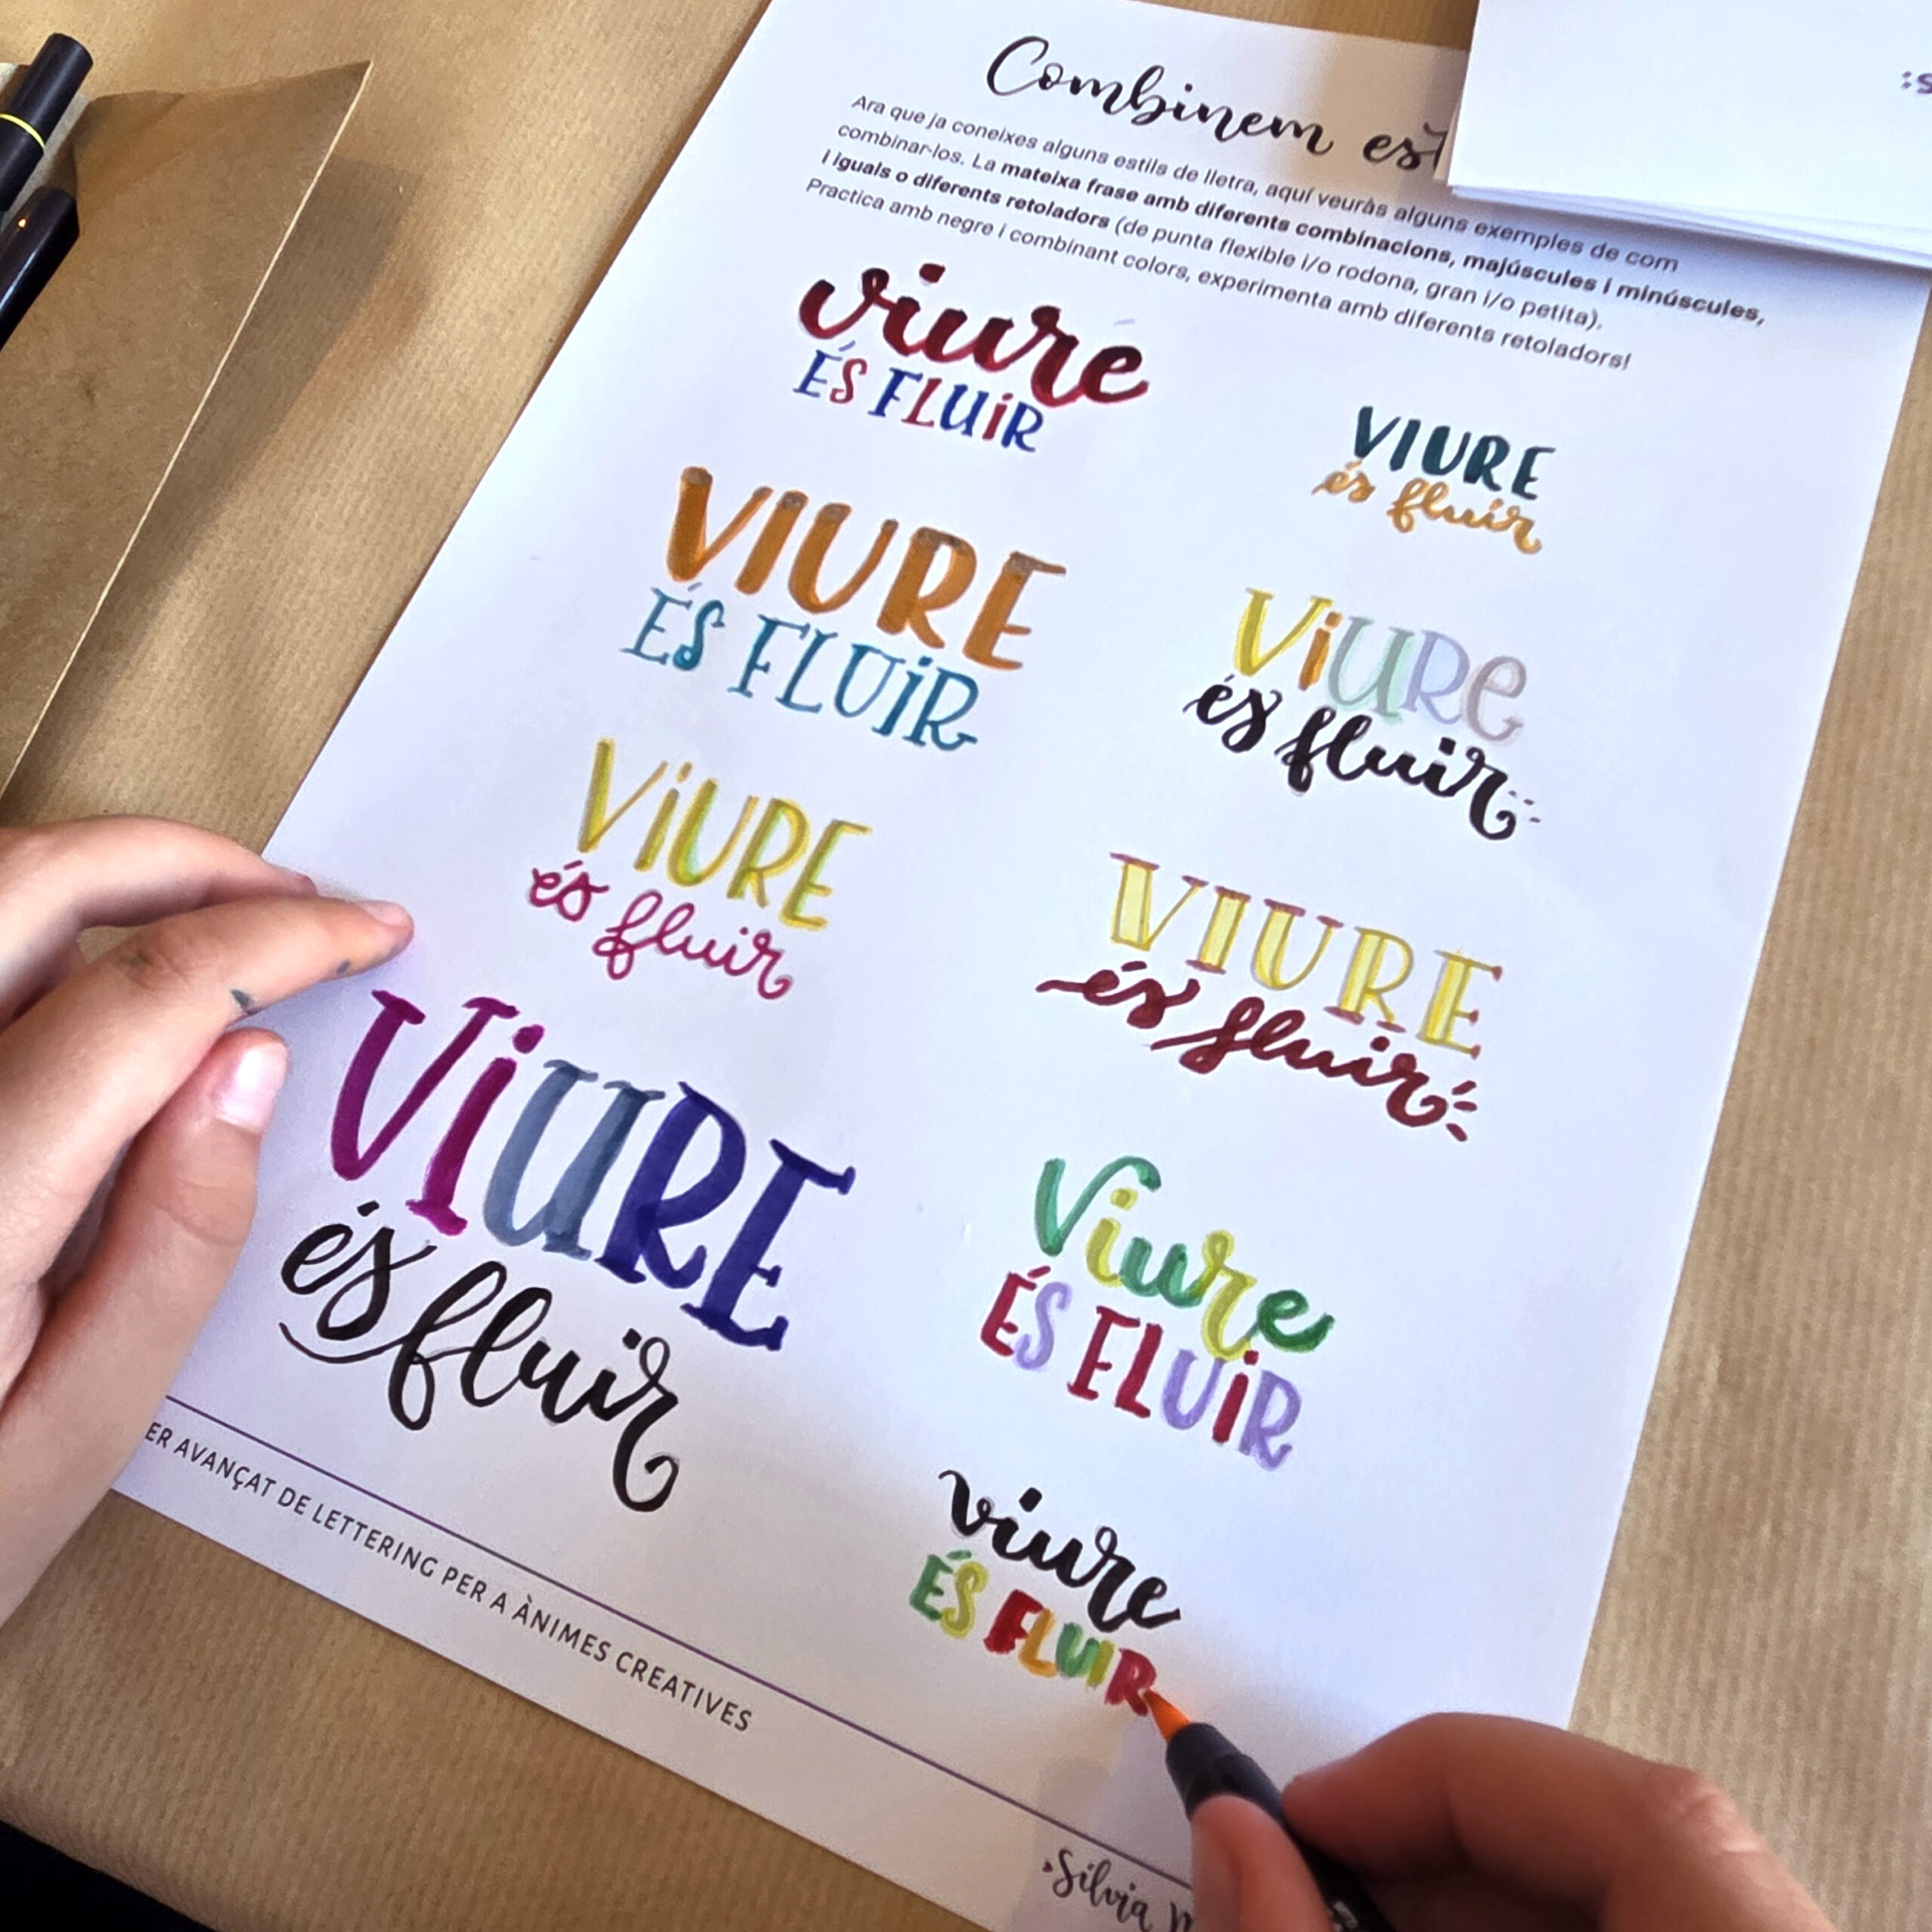 Combinem
Ara que ja coneixes alguns estils de lletra, aquí veuràs alguns exemples de com
combinar-los. La mateixa frase amb diferents combinacions, majúscules i minúscules,
i iguals o diferents retoladors (de punta flexible i/o rodona, gran i/o petita).
Practica amb negre i combinant colors, experimenta amb diferents retoladors!
viure
ÉS FLUiR
VIURE
és fluir
VIURE
ÉS FLUiR
ViURe
és fluir
ViURE
és fluir
VIURE
és fluir
ViURE
és fluir
Viure
ÉS FLUiR
viure
ÉS FLUIR
AVANÇAT DE LETTERING PER A ÀNIMES CREATIVES
Sílvia